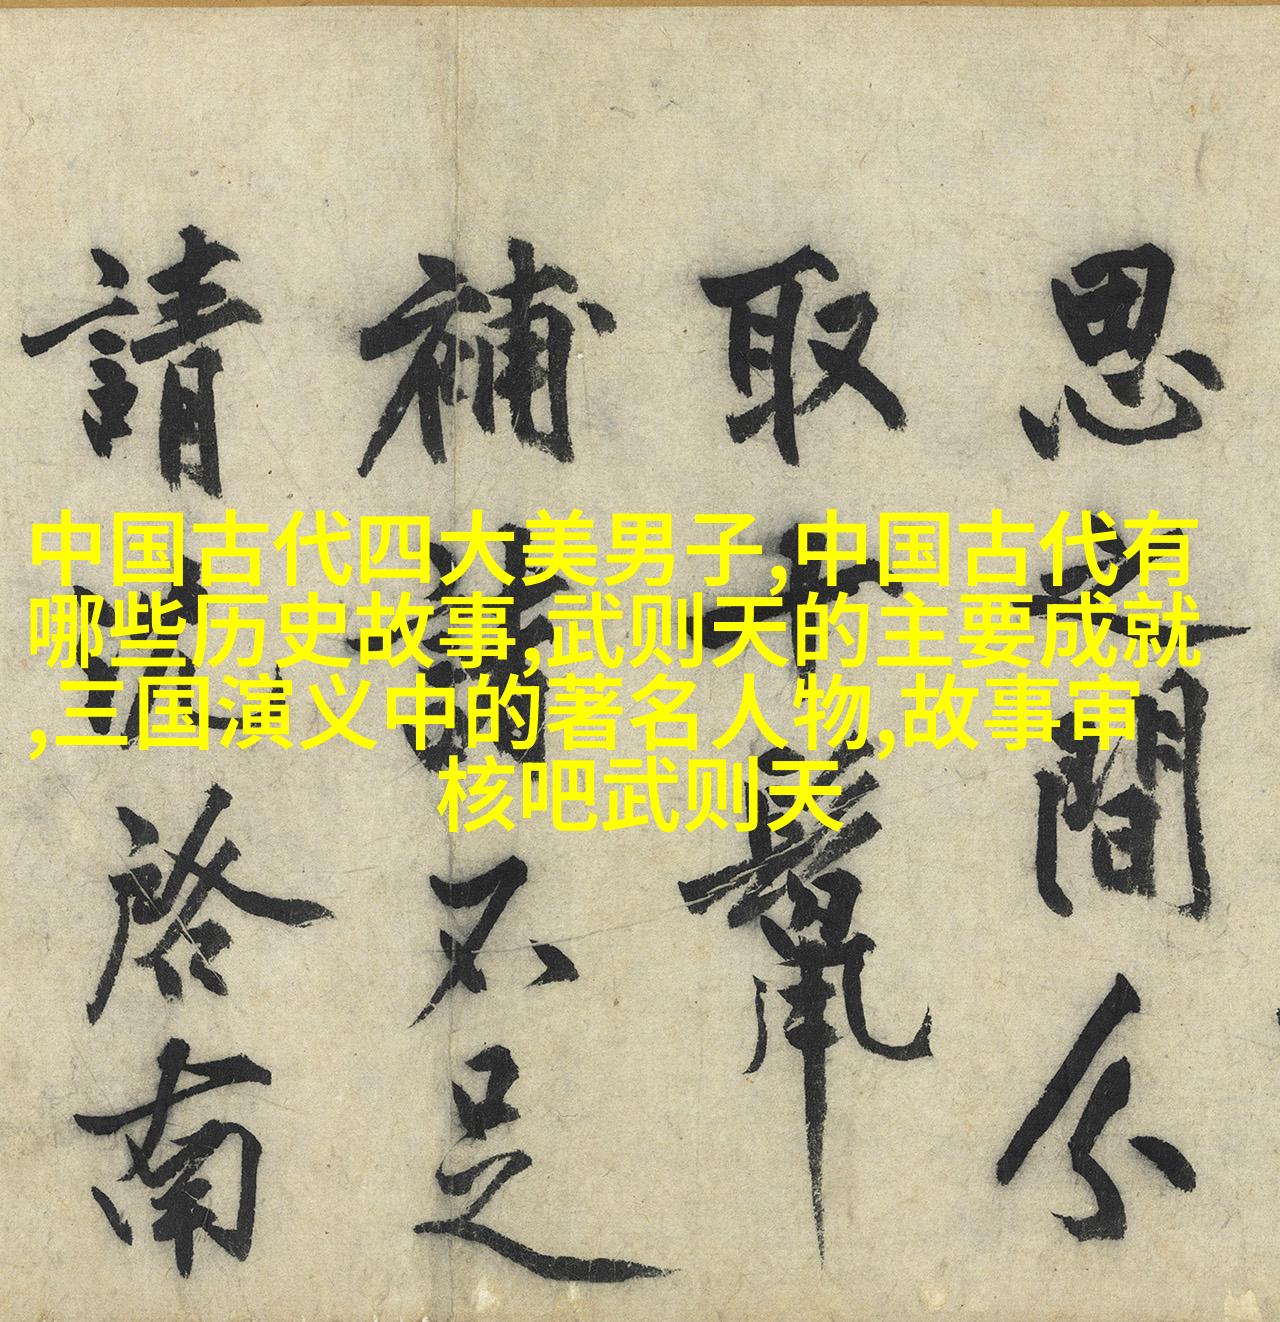 中国古代四大美男子,中国古代有
哪些历史故事,武则天的主要成就
,三国演义中的著名人物,故事审
核吧武则天
思
間分
取
補
不足
請
啓南